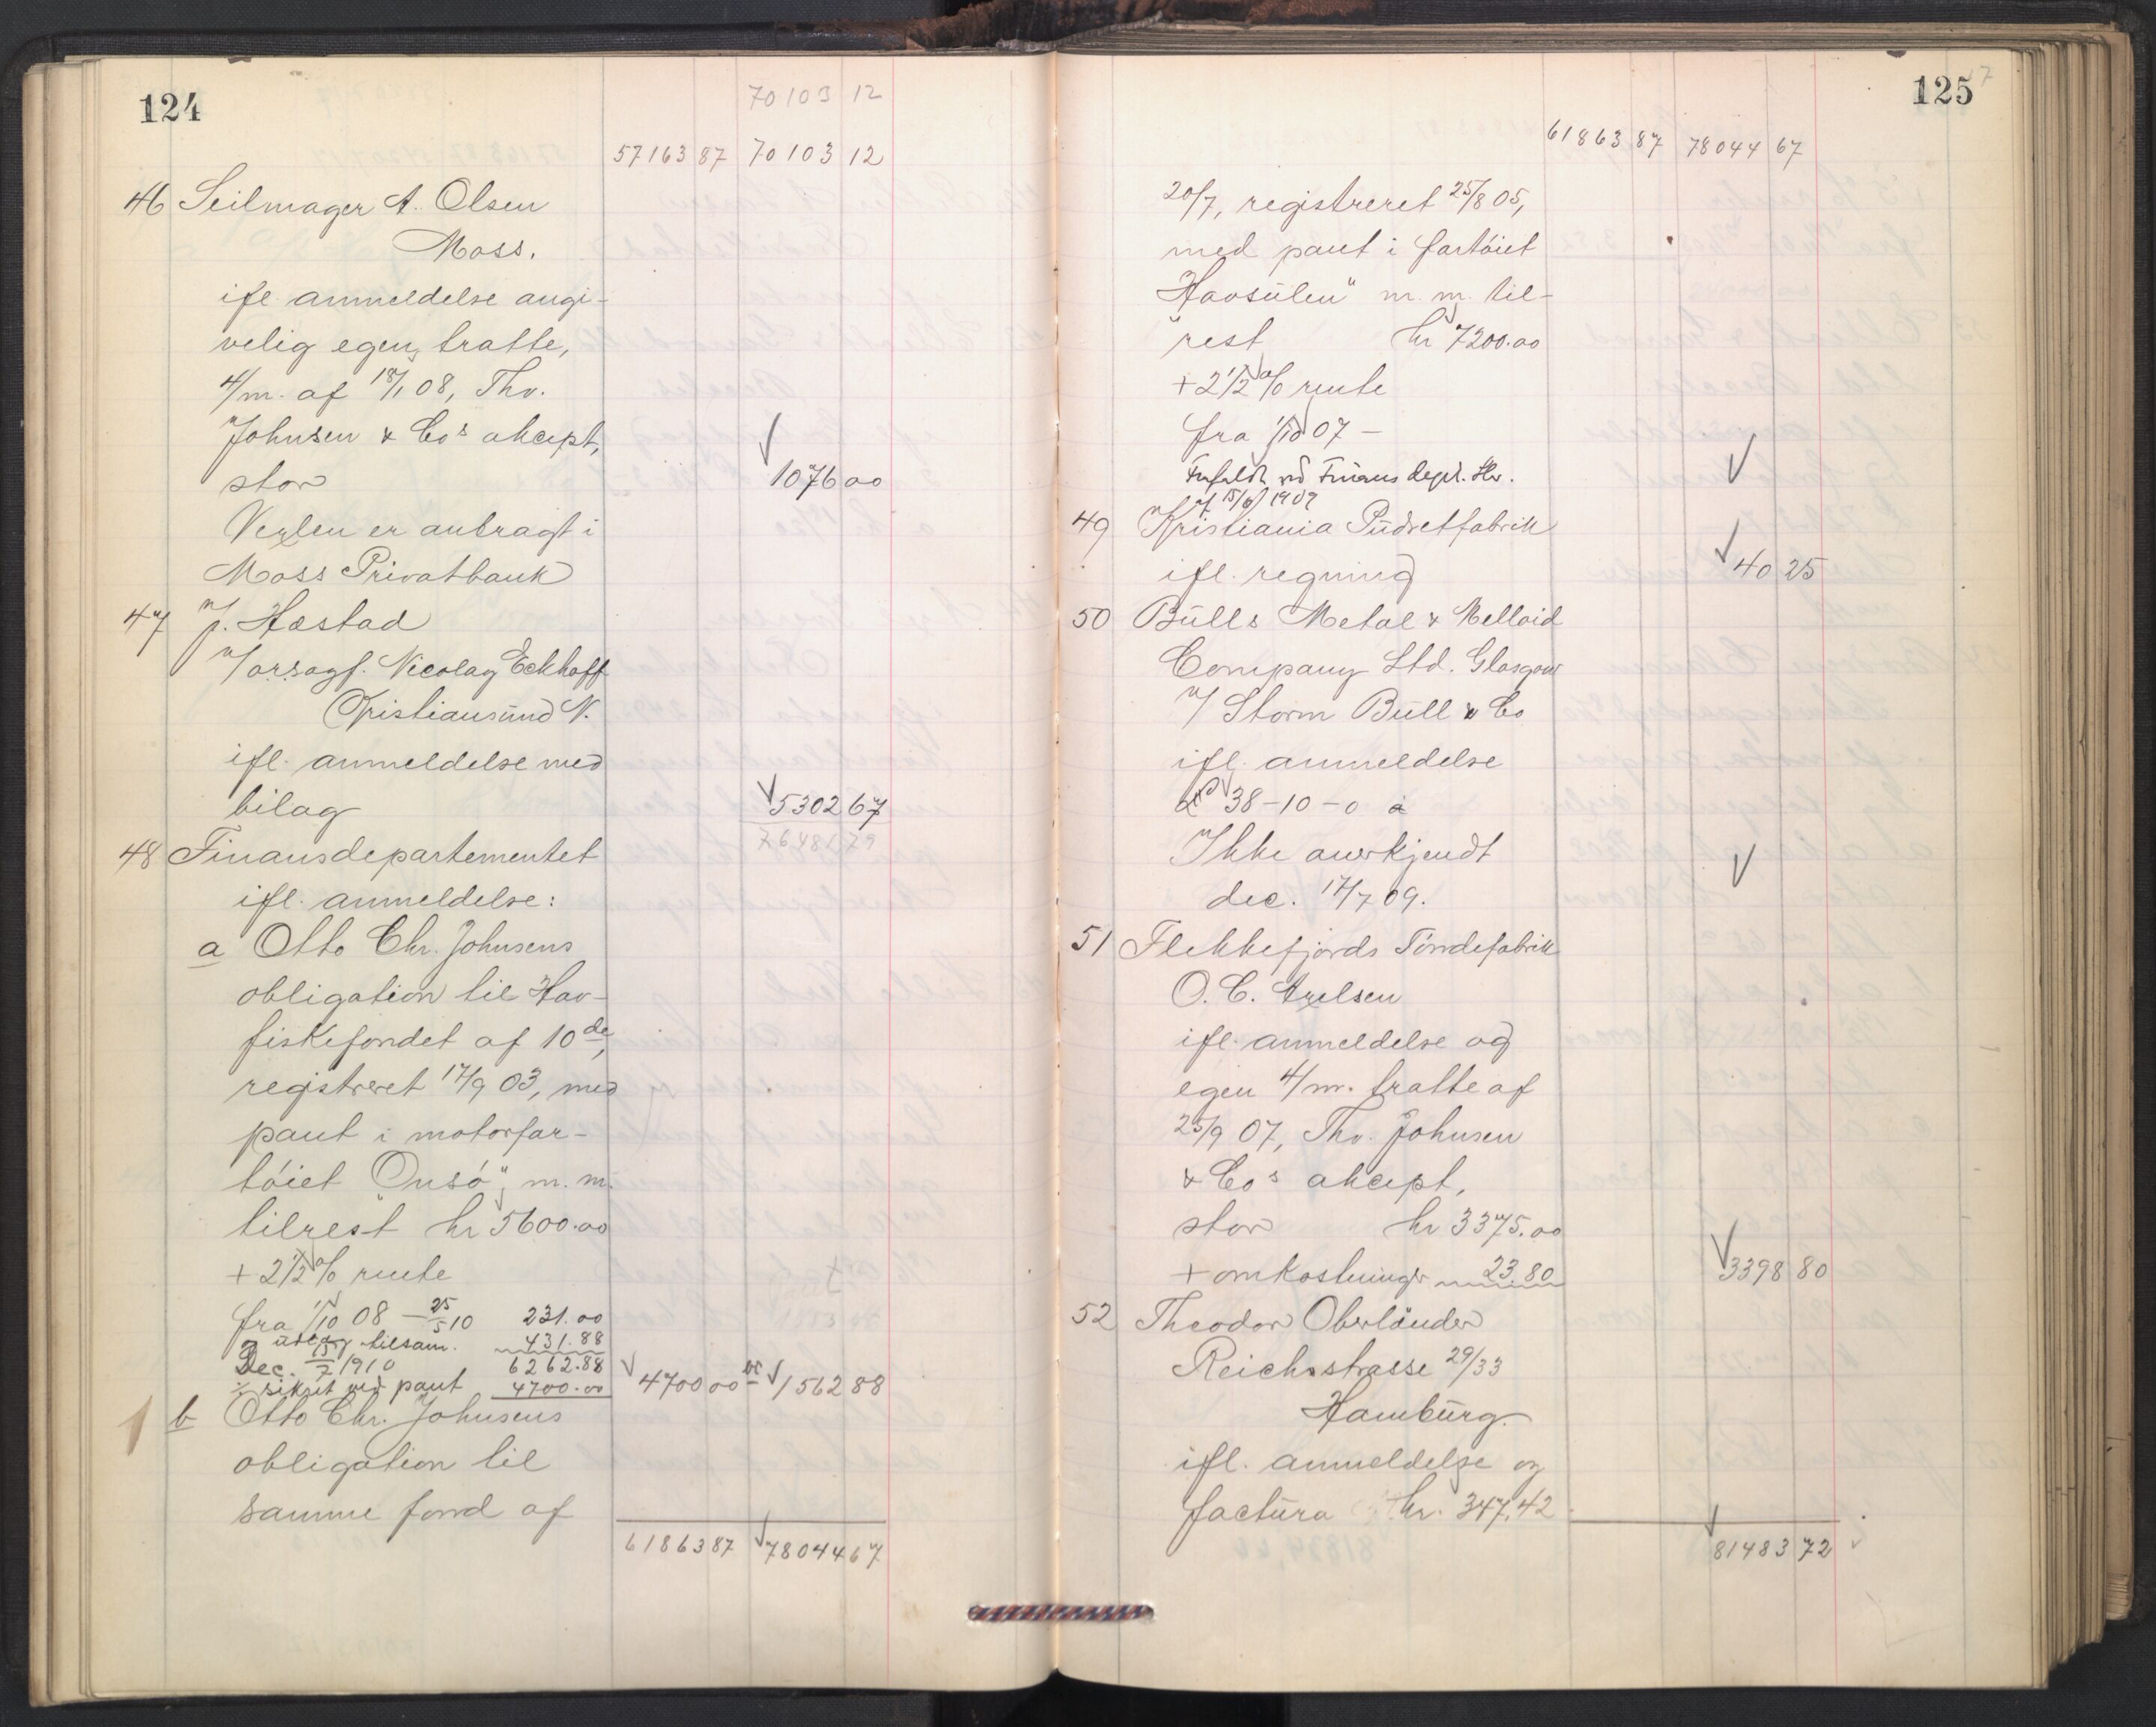 124
70103 12
57163 87 70103 12
46 Seilmager A. Olsen
Moss.
ifl. anmeldelse angi-
velig egen tratte,
4/m. af 18/1 08, Thv.
Johnsen & Cos akcept,
stor 1076 00
Vexlen er anbragt i
Moss Privatbank
47 J. Hæstad
v/ orsagf. Nicolay Eckhoff
Kristiansund N.
ifl. anmeldelse med
bilag 5302 67
76481 79
48 Finansdepartementet
ifl. anmeldelse:
a Otto Chr. Johnsens
obligation til Hav-
fiskefondet af 10de,
registreret 17/9 03, med
pant i motorfar-
tøiet "Onsø", m. m.
tilrest kr 5600.00
+ 2 1/2 % rente
fra 1/10 08 – 25/5 10 231.00
og utlæg tilsam. 431.88
Dec. 15/7 1910 6262.88
÷ sikret ved pant 4700.00 4700 00 1562 88
b Otto Chr. Johnsens
obligation til
samme fond af
61863 87 78044 67
125
61863 87 78044 67
20/7, registreret 25/8 05,
med pant i fartøiet
"Havsülen" m. m. til-
rest kr 7200.00
+ 2 1/2 % rente
fra 1/10 07 –
Frafaldt ved Finansdept. skr.
af 15/6 1909
49 Kristiania Pudretfabrik
ifl. regning 40 25
50 Bülls Metal & Melloid
Company Ltd. Glasgow
v/ Storm Büll & Co
ifl. anmeldelse
£ 38–10–0 a
Ikke anerkjendt
dec. 17/7 09.
51 Flekkefjords Tøndefabrik
O. C. Axelsen
ifl. anmeldelse og
egen 4/m. tratte af
25/9 07, Thv. Johnsen
& Cos akcept,
stor kr 3375.00
+ omkostninger 23.80 3398 80
52 Theodor Oberländer
Reichsstrasse 29/33
Hamburg.
ifl. anmeldelse og
factura kr. 347.42
81483 72